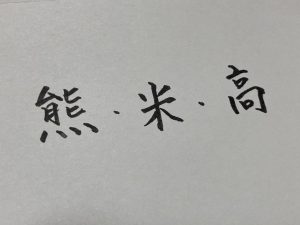 熊·米·高